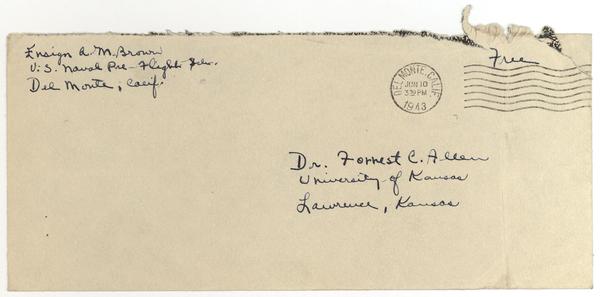 Ensign A. M. Brown
U.S. Naval Pre-Flight
Del Monte, Calif.
Free
DEL MONTE, CALIF.
JUN 10
3 PM
1943
Dr. Forrest C. Allen
University of Kansas
Lawrence, Kansas